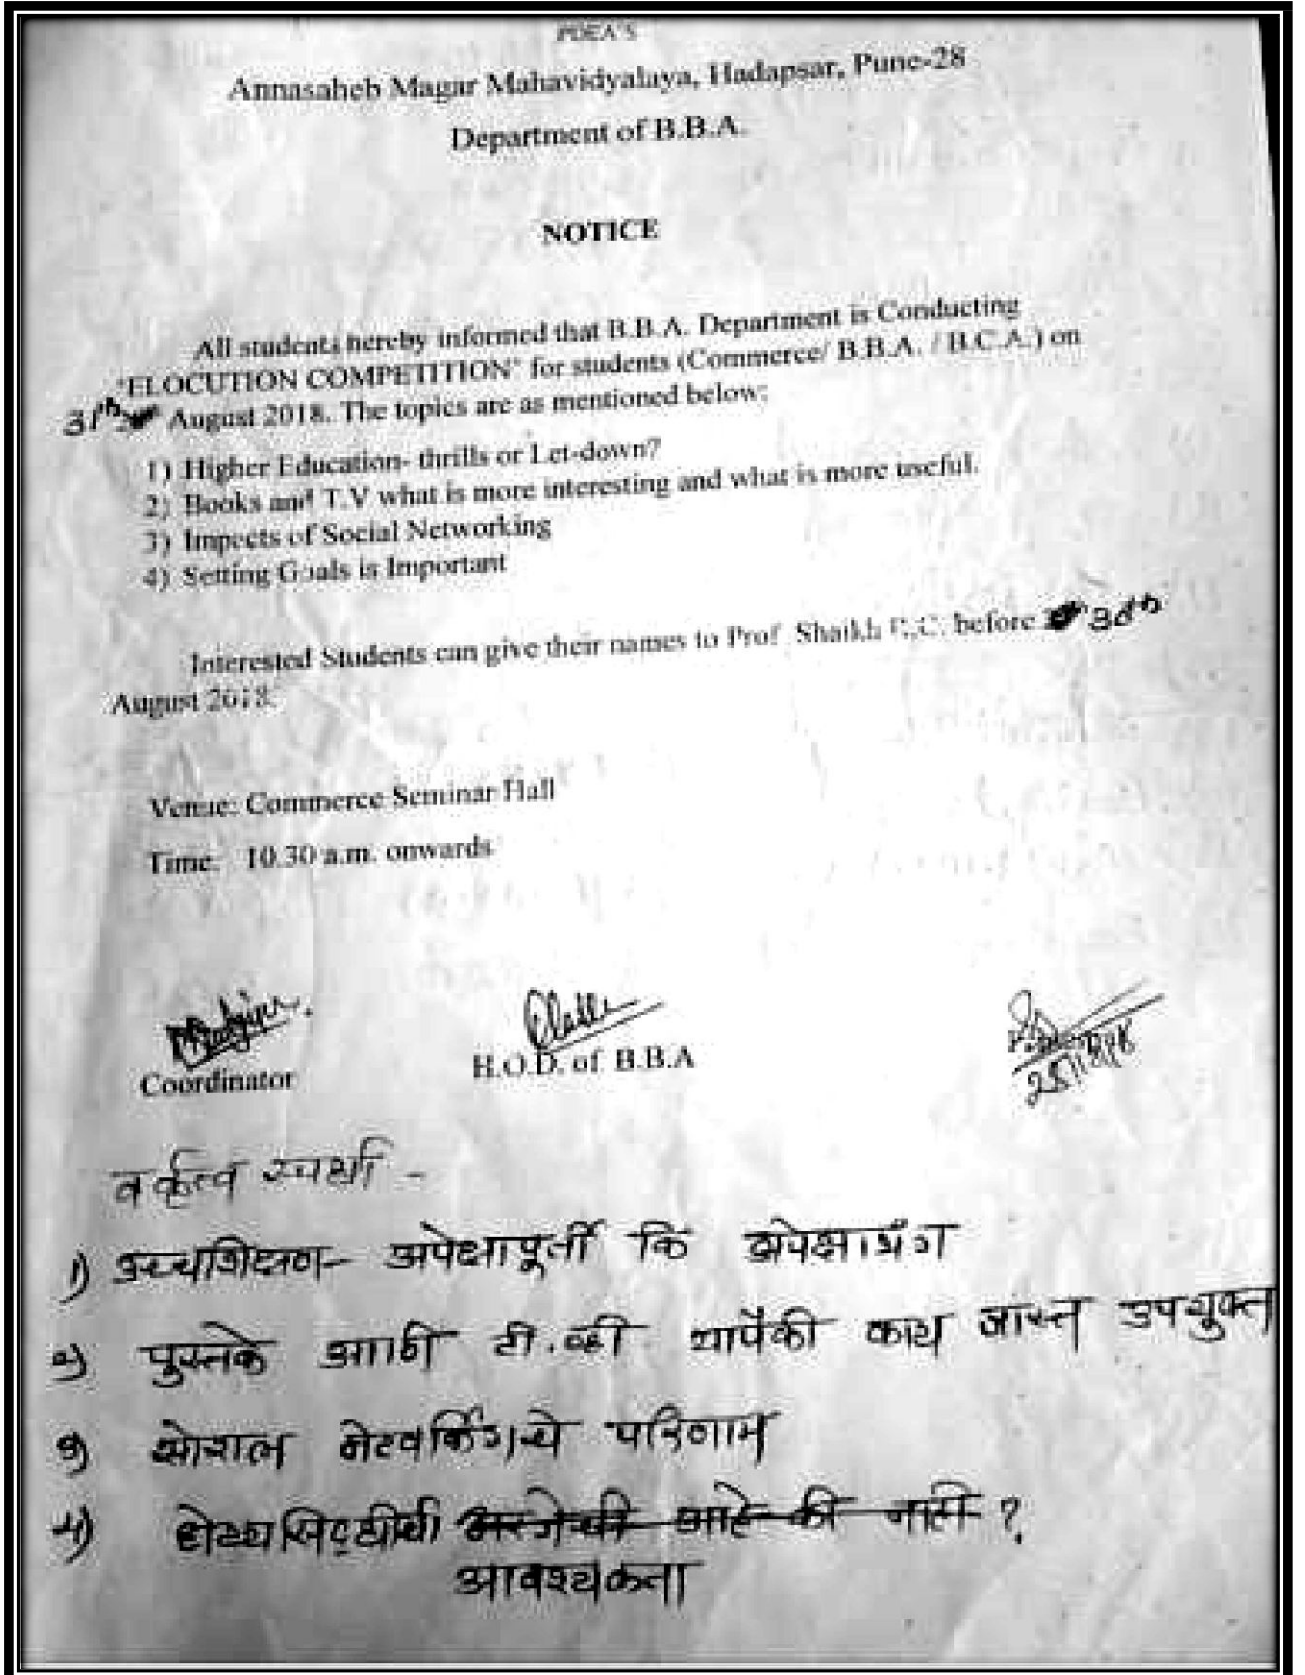 PDEA'S
Annasaheb Magar Mahavidyalaya, Hadapsar, Pune-28
Department of B.B.A.
NOTICE
All students hereby informed that B.B.A. Department is Conducting
"ELOCUTION COMPETITION" for students (Commerce/ B.B.A. / B.C.A.) on
31th August 2018. The topics are as mentioned below:
1) Higher Education- thrills or Let-down?
2) Books and T.V what is more interesting and what is more useful.
3) Impects of Social Networking
4) Setting Goals is Important
Interested Students can give their names to Prof. Shaikh before 30th
August 2018.
Venue: Commerce Seminar Hall
Time: 10.30 a.m. onwards
Coordinator
H.O.D. of B.B.A
वर्कृत्व स्पर्धा -
1) उच्चशिक्षण- अपेक्षापूर्ती कि अपेक्षाभंग
२) पुस्तके आणि टी.व्ही यापैकी काय जास्त उपयुक्त
३) सोशल नेटवर्किंगचे परिणाम
४) आहे की नाही ?
आवश्यकता